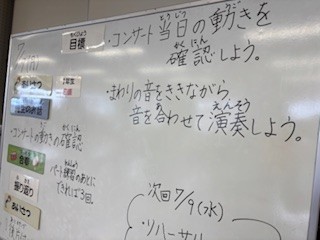 目標
・コンサート当日の動きを
確認しよう。
・まわりの音をききながら
音を合わせて演奏しよう。
あいさつ
・コンサートの動きの確認
合奏
パート練習のあとに
できれば3回。
振り返り
あいさつ
次回7/9(水)
・リハーサル